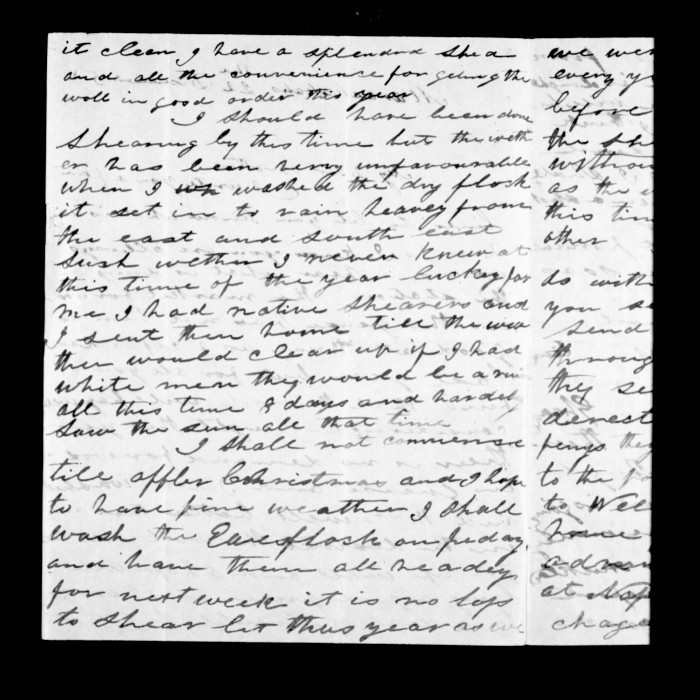 it clean I have a splendad shed
and all the convenience for geting the
woll in good order this year
I should have been done
Shearing by this time but the weth
er has been verry unfavourable
when I wh washed the dry flock
it set in to rain heavey from
the east and south east
Such wether I never knew at
this time of the year luckey for
me I had native shearers and
I sent them home till the wea
ther would clear up if I had
white men they would be a
all this time 8 days and hardely
Saw the sun all that time
I Shall not commense
till affter Christmas and I hope
to have fine weather I shall
wash the Ewe flock on
and have them all readey
for next week it is no
to shear let thus year as we
we wer
every y
before
the she
withou
as the
this tim
other
do with
you se
send
throug
they se
derest
they
to the
to Wel
home
at Nap